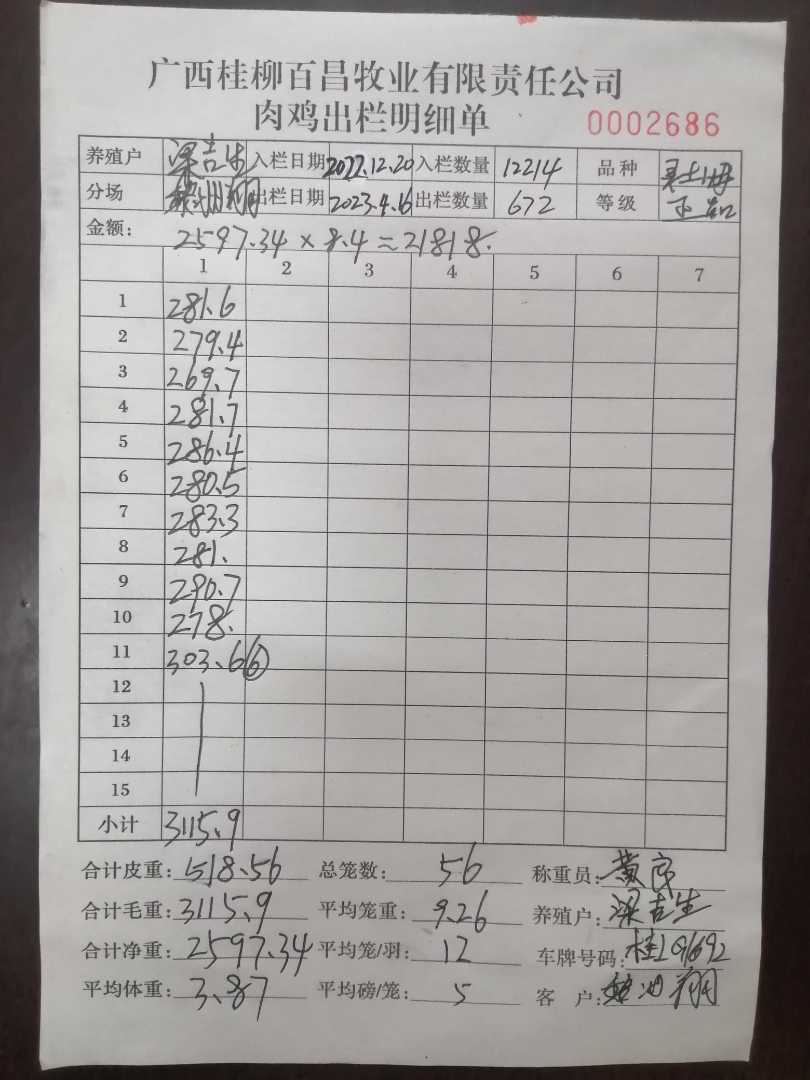 广西桂柳百昌牧业有限责任公司
肉鸡出栏明细单 0002686
养殖户 梁吉生 入栏日期 2022.12.20 入栏数量 12214 品种
分场 翔 出栏日期 2023.4.16 出栏数量 672 等级 正品
金额: 2597.34 × 8.4 = 21818.
1 2 3 4 5 6 7
1 281.6
2 279.4
3 269.7
4 281.7
5 286.4
6 280.5
7 283.3
8 281.
9 290.7
10 278.
11 303.6 ⑥
12
13
14
15
小计 3115.9
合计皮重: 518.56 总笼数: 56 称重员: 黄良
合计毛重: 3115.9 平均笼重: 9.26 养殖户: 梁吉生
合计净重: 2597.34 平均笼/羽: 12 车牌号码: 桂LG1692
平均体重: 3.87 平均磅/笼: 5 客户: 翔